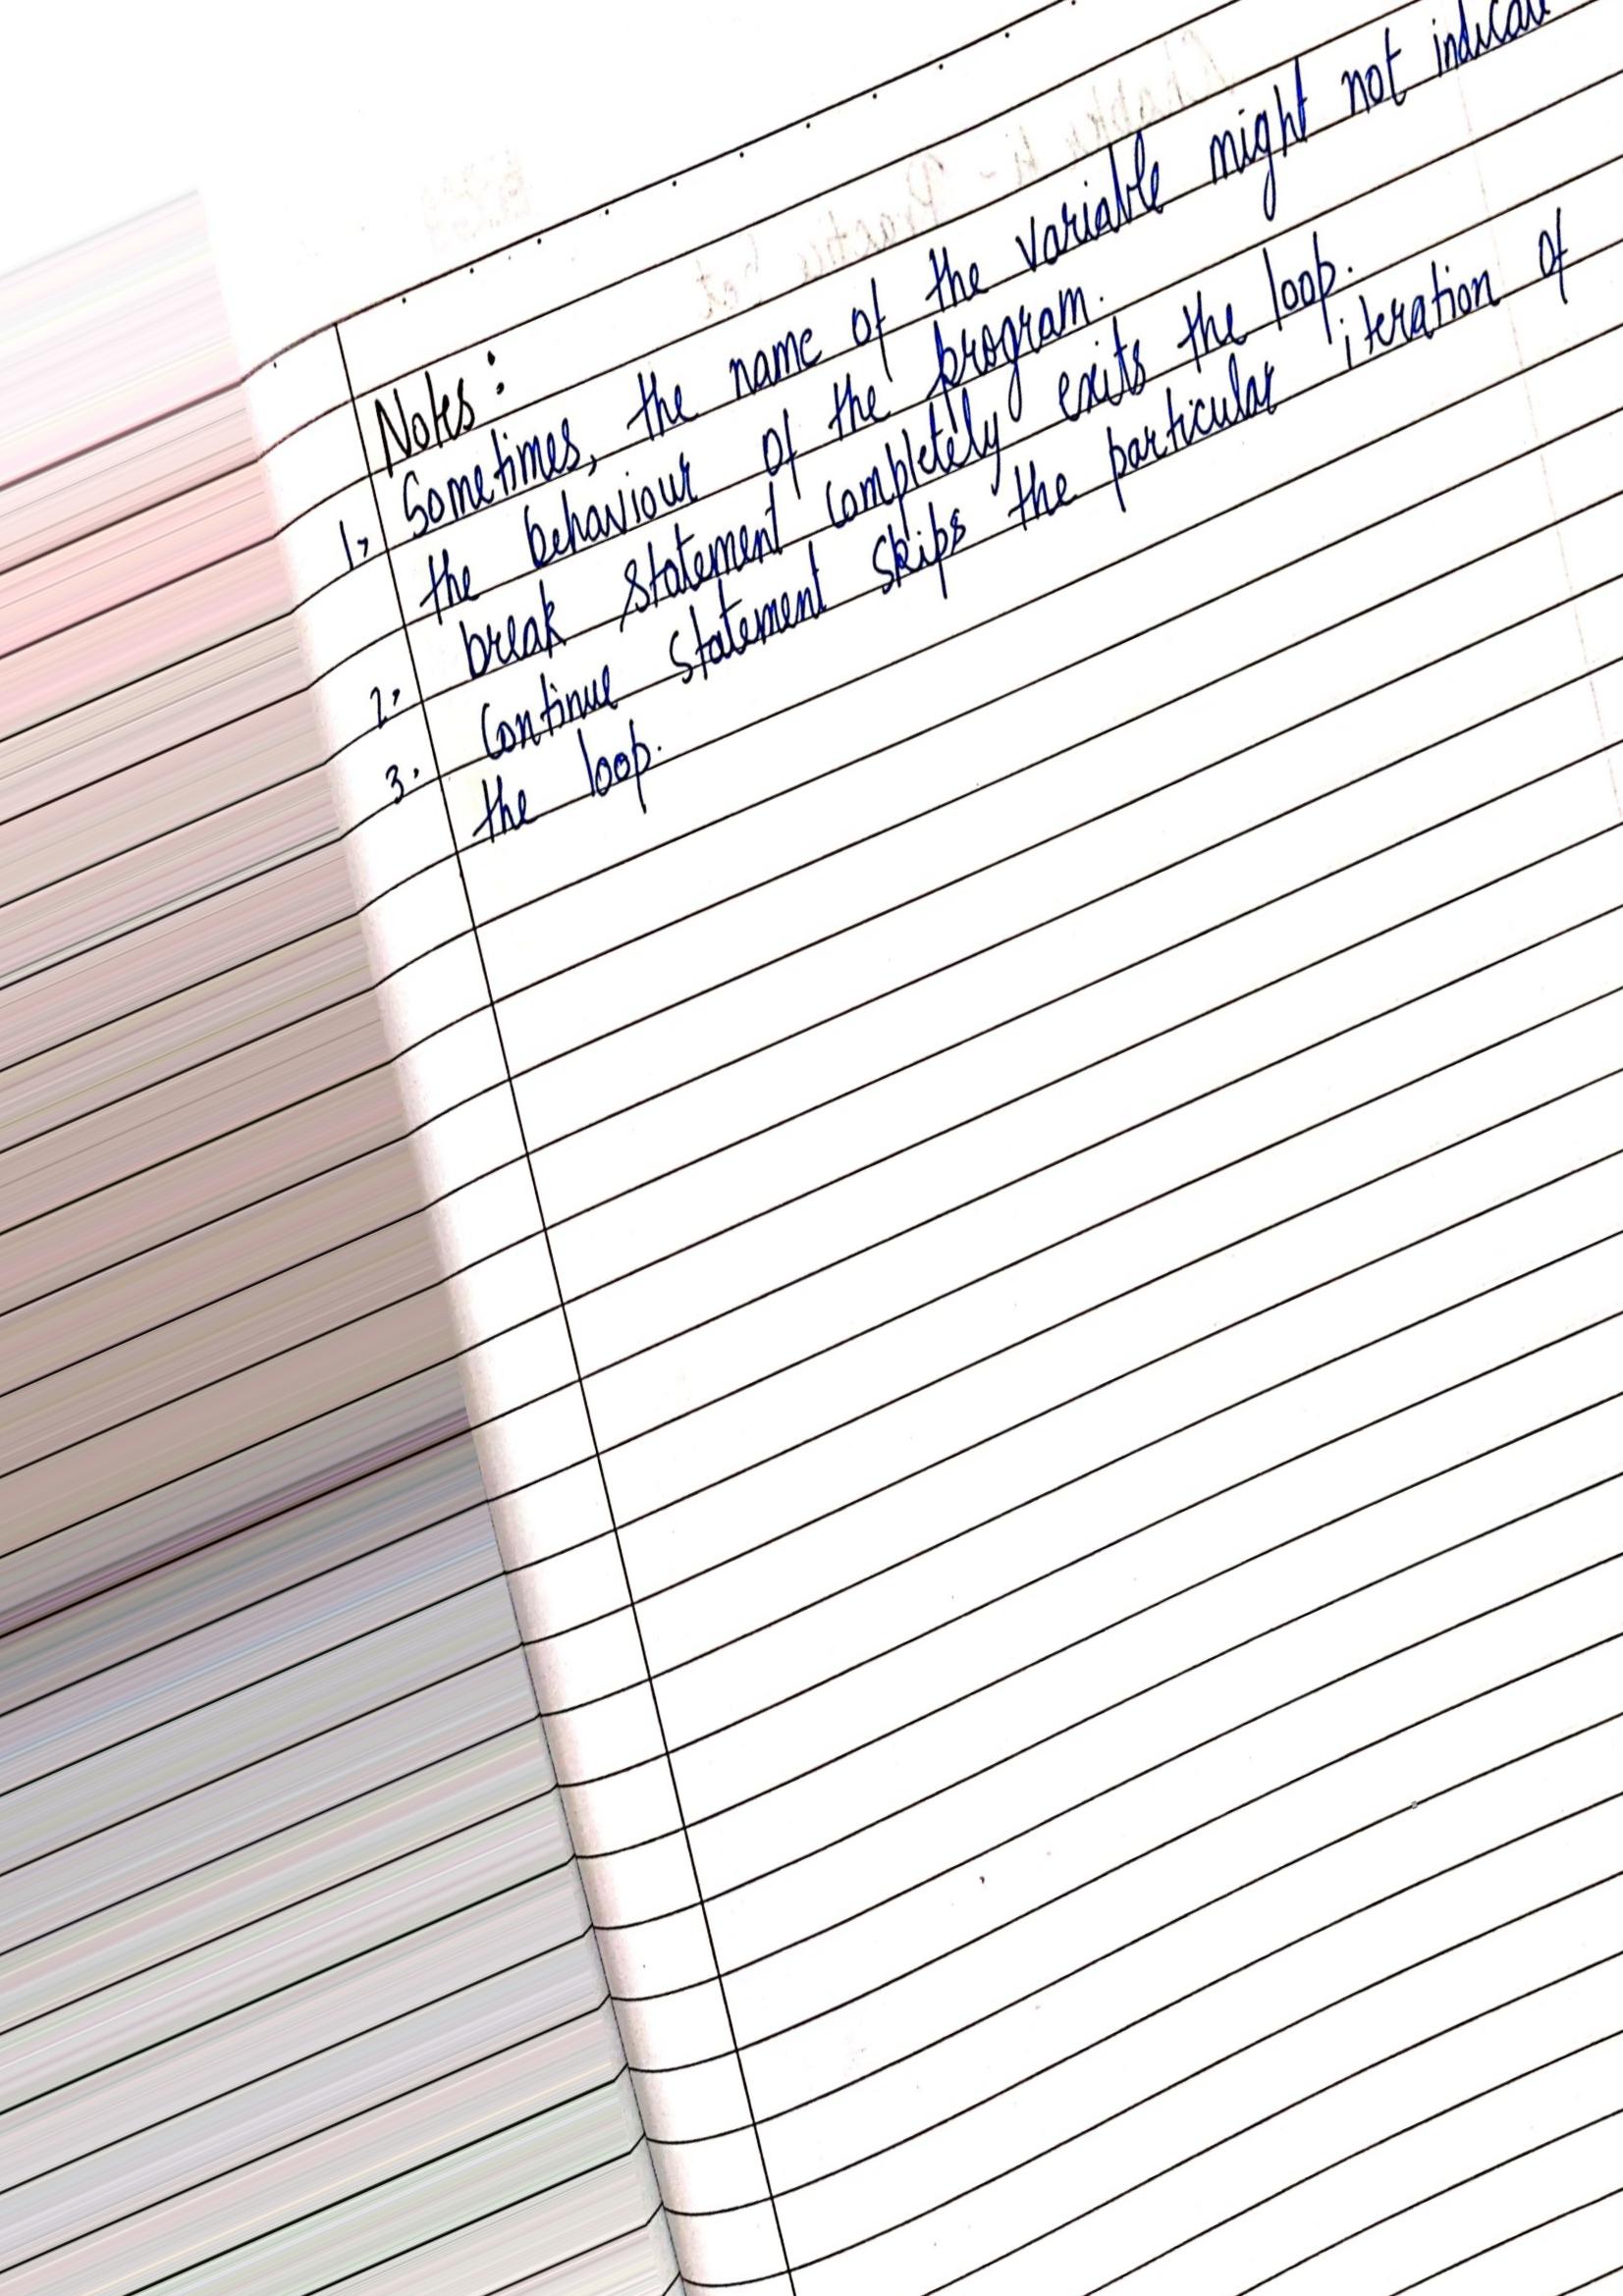 Notes:
1. Sometimes, the name of the variable might not indicate
the behaviour of the program.
2. break statement completely exits the loop.
3. Continue statement skips the particular iteration of
the loop.